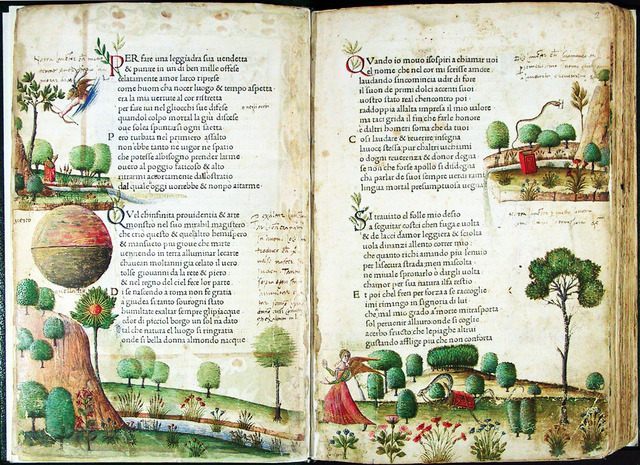 PER fare una leggiadra sua vendetta
& punire in un di ben mille offese
celatamente amor larco riprese
come huom cha nocer luogo & tempo aspetta
era la mia uertute al cor ristretta
per fare iui & negliocchi sue difese
quandol colpo mortal la giu discese
oue solea spuntarsi ogni saetta
Pero turbata nel primiero assalto
non ebbe tanto ne uigor ne spatio
che potesse albisogno prender larme
ouero al poggio faticoso & alto
ritrarmi accortamente dallo stratio
dal quale oggi uorrebbe & non po aitarme
QVel chinfinita prouidentia & arte
mostro nel suo mirabil magistero
che crio questo & quellaltro hemispero
& mansueto piu gioue che marte
uenendo in terra alluminar le carte
chauean moltanni gia celato il uero
tolse giouanni da la rete & piero
& nel regno del ciel fece lor parte
Di se nascendo a roma non fe gratia
a giudea si tanto sourogni stato
humiltate exaltar sempre glipiacque
& or di picciol borgo un sol na dato
tal che natura el luogo si ringratia
onde si bella donna almondo nacque
QVando io mouo isospiri a chiamar uoi
el nome che nel cor mi scrisse amore
laudando sincomincia udir di fore
il suon de primi dolci accenti suoi
uostro stato real chencontro poi
raddoppia allalta impresa il mio ualore
ma taci grida il fin che farle honore
e daltri homeri soma che da tuoi
Cosi laudare & reuerire insegna
la uoce stessa pur chaltri uichiami
o dogni reuerenza & donor degna
se non che forse apollo si disdegna
cha parlar de suoi sempre uerdi rami
lingua mortal presumptuosa uegna
SI trauiato el folle mio desio
a seguitar costei chen fuga e uolta
& de lacci damor leggiera & sciolta
uola dinanzi allento correr mio
che quanto richiamando piu lenuio
per lasecura strada men mascolta
ne miuale spronarlo o dargli uolta
chamor per sua natura il fa restio
E poi chel fren per forza a se raccoglie
imi rimango in signoria di lui
che mal mio grado a morte mitrasporta
sol peruenir allauro onde si coglie
acerbo fructo che lepiaghe altrui
gustando afflige piu che non conforta